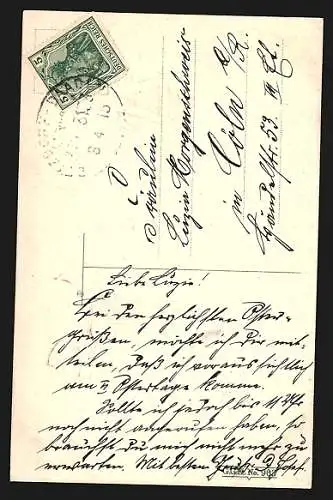 DEUTSCHES REICH
5
5
8 4 15
Fräulein
Luzia Morgenschweis
in Cöln a/R.
Händelstr. 53 II Et.
Liebe Luzie!
Bei den herzlichsten Oster-
grüßen, möchte ich Dir mit-
teilen, daß ich voraussichtlich
am II Ostertage komme.
Sollte ich jedoch bis 11 Uhr
noch nicht angerufen haben, so
brauchst du mich nicht mehr zu
erwarten. Mit besten